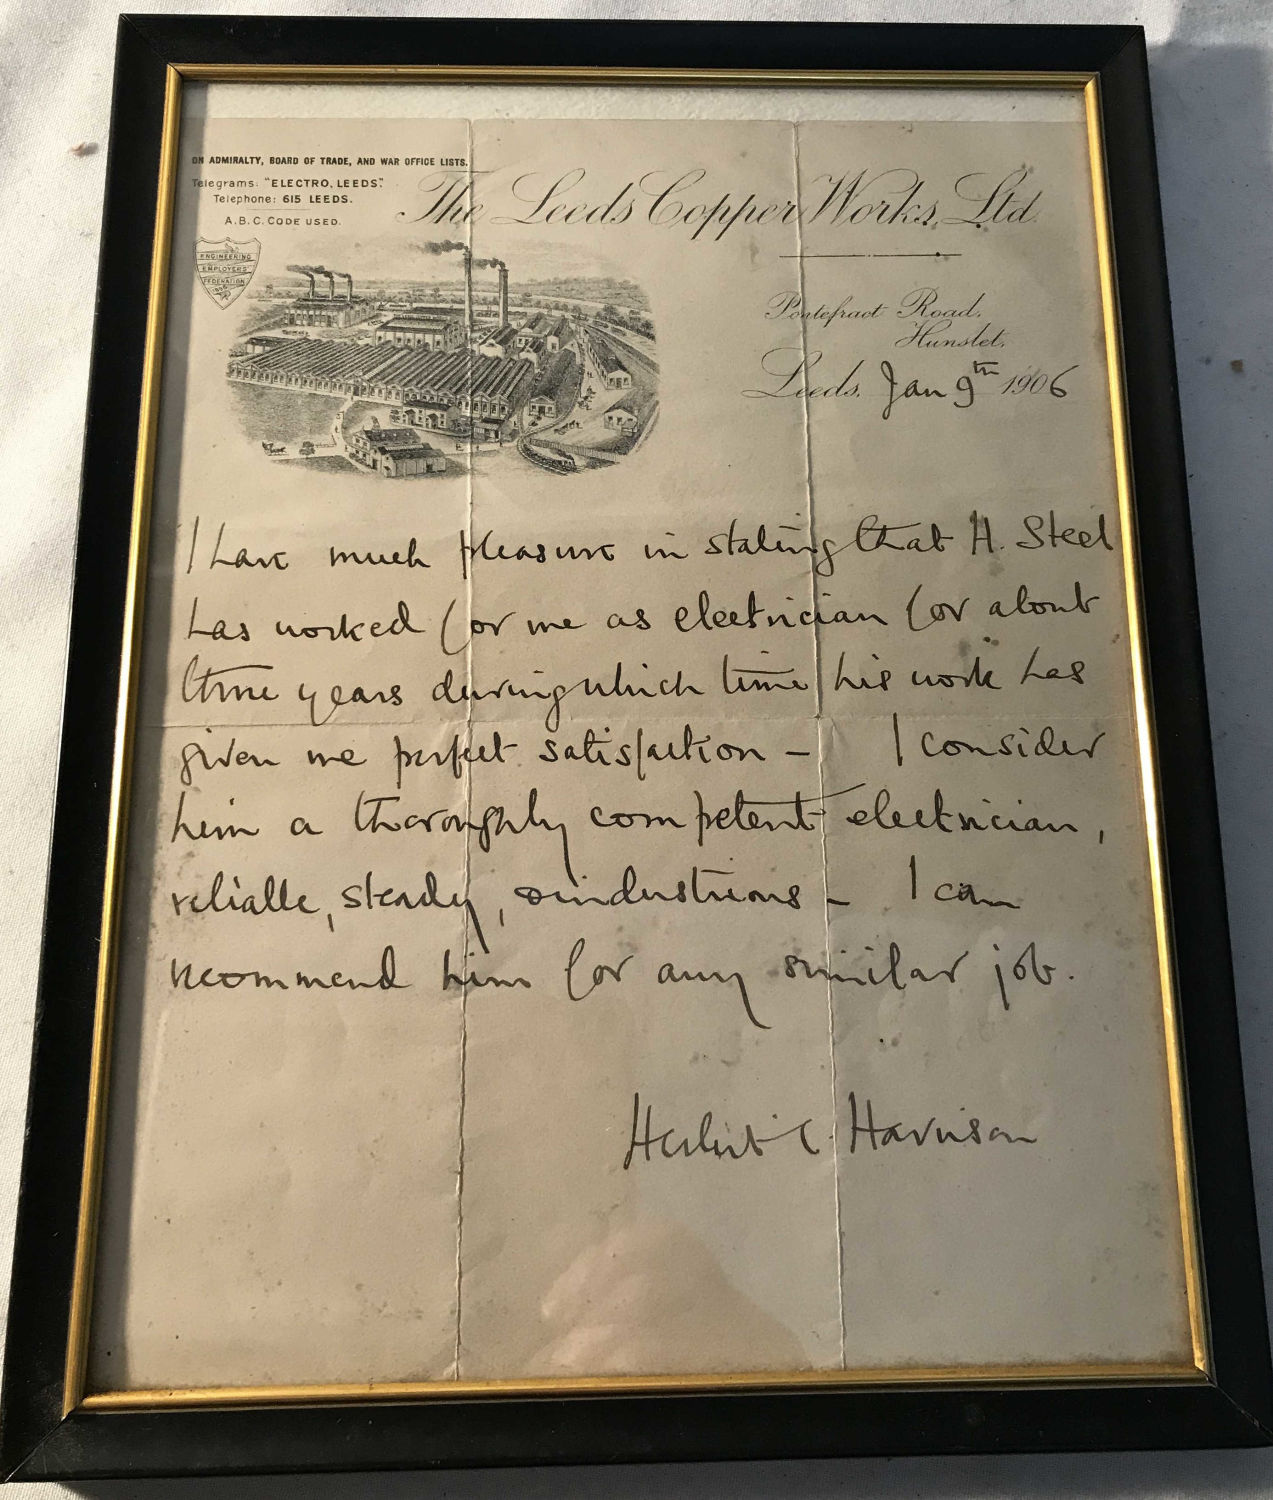 ON ADMIRALTY, BOARD OF TRADE, AND WAR OFFICE LISTS.
Telegrams: "ELECTRO, LEEDS."
Telephone: 615 LEEDS.
A.B.C. CODE USED.
The Leeds Copper Works, Ltd.
ENGINEERING
EMPLOYERS'
FEDERATION
Pontefract Road,
Hunslet,
Leeds, Jan 9th 1906
I have much pleasure in stating that H. Steel
has worked for me as electrician for about
three years during which time his work has
given me perfect satisfaction – I consider
him a thoroughly competent electrician,
reliable, steady, & industrious – I can
recommend him for any similar job.
Herbert C. Harrison